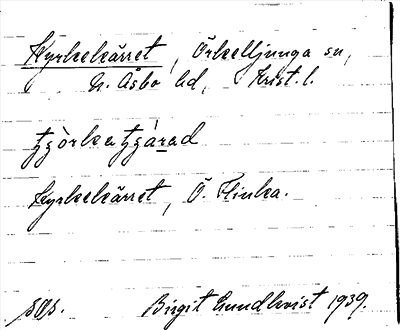 Kyrkekärret, Örkelljunga sn,
N. Åsbo hd, Krist. l.
Kyrkekärret, Ö. Flinka.
sös. Birgit Lundkvist 1939.